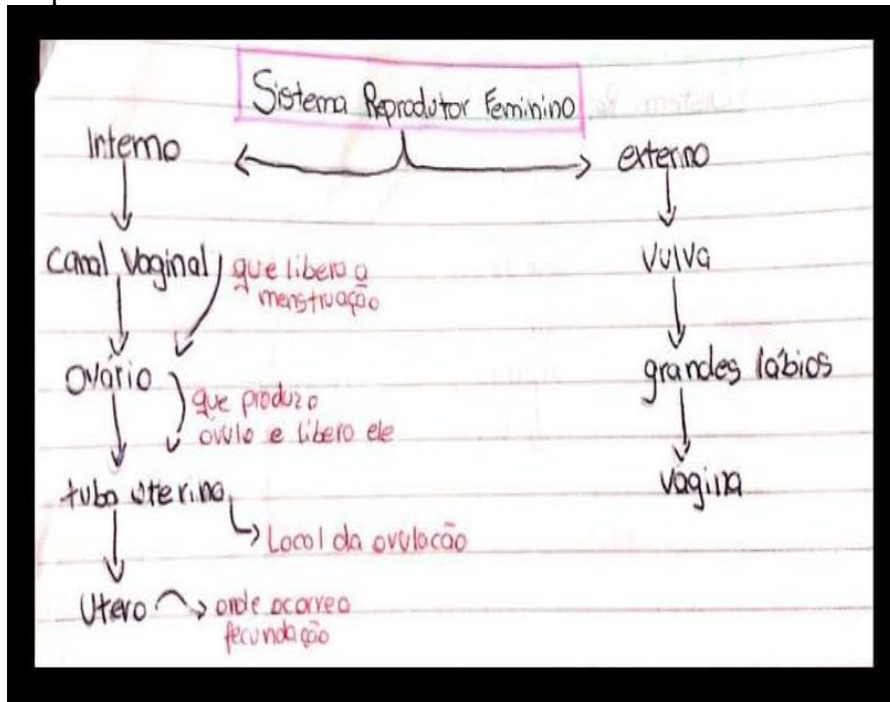 Sistema Reprodutor Feminino
Interno
externo
Canal Vaginal
que libera a
menstruação
Ovário
que produz o
óvulo e libera ele
tuba uterina
Local da ovulação
Utero
onde ocorre a
fecundação
Vulva
grandes lábios
vagina